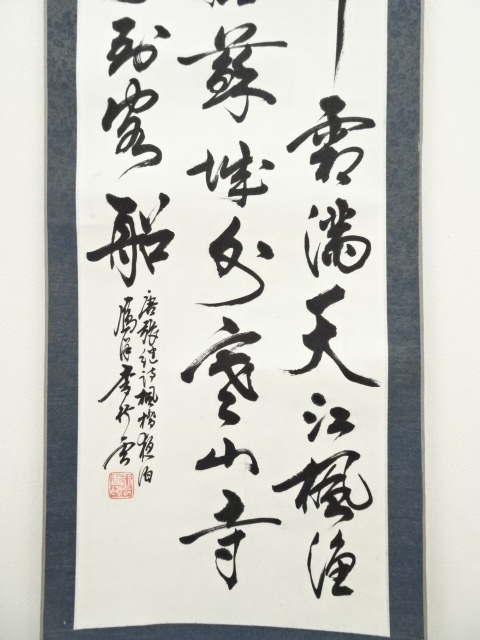 霜満天江楓漁
蘇城外寒山寺
到客船
唐張継詩楓橋夜泊